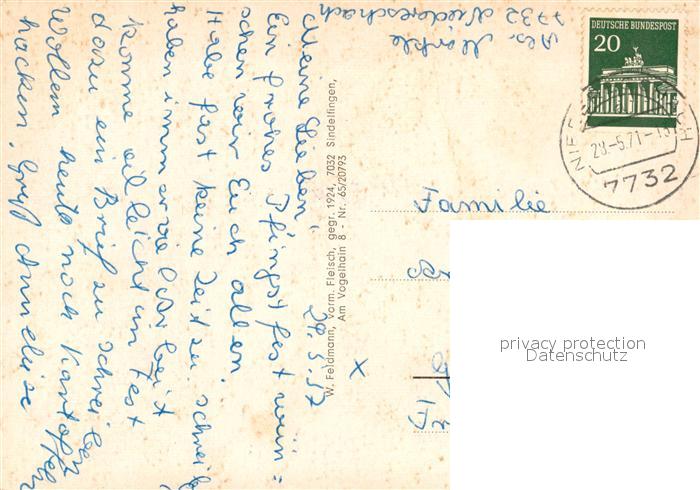 Abs. Märkle
7732 Niedereschach
DEUTSCHE BUNDESPOST
20
28.-5.71-
7732
Familie
privacy protection
Datenschutz
W. Feldmann, vorm. Fleisch, gegr. 1924, 7032 Sindelfingen,
Am Vogelhain 8 - Nr. 65/20793
Meine Lieben,
Ein frohes Pfingstfest wün=
schen wir Euch allen.
Habe fast keine Zeit zu schreib
haben immer viel Arbeit
komme villeicht am Fest
dazu ein Brief zu schreiben
Wollen heute noch Kartoffeln
hacken. Gruß Annelise